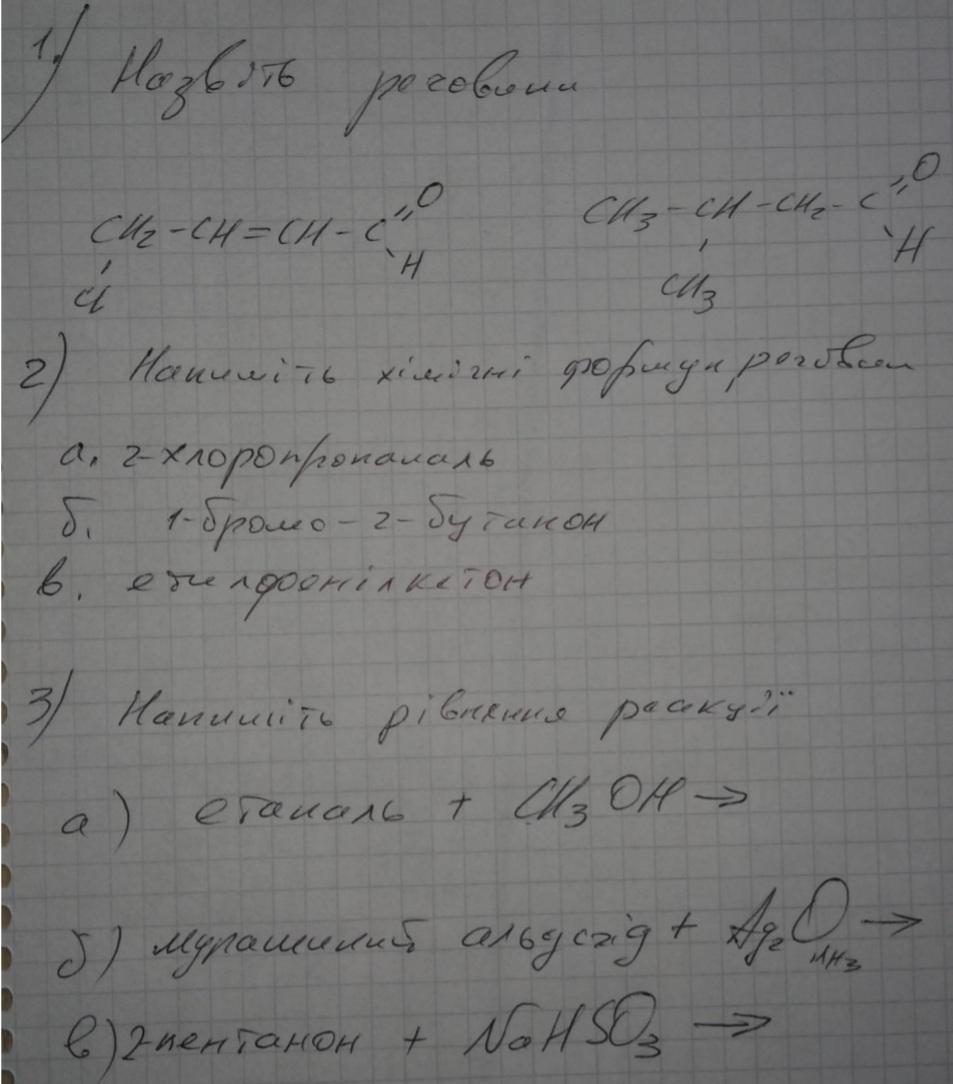 1.) Назвіть речовини
CH₂-CH=CH-C=O CH₃-CH-CH₂-C=O
Cl H CH₃ H
2) Напишіть хімічні формули речовин
а. 2-хлоропропаналь
б. 1-бромо-2-бутанон
в. етилфенілкетон
3) Напишіть рівняння реакції
а) етаналь + CH₃OH →
б) мурашиний альдегід + Ag₂O NH₃ →
в) 2-пентанон + NaHSO₃ →